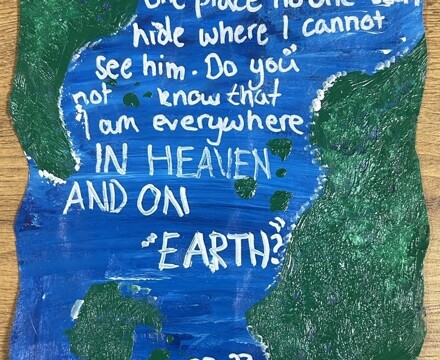 one place no one can
hide where I cannot
see him. Do you
not know that
I am everywhere
IN HEAVEN
AND ON
EARTH?"
23